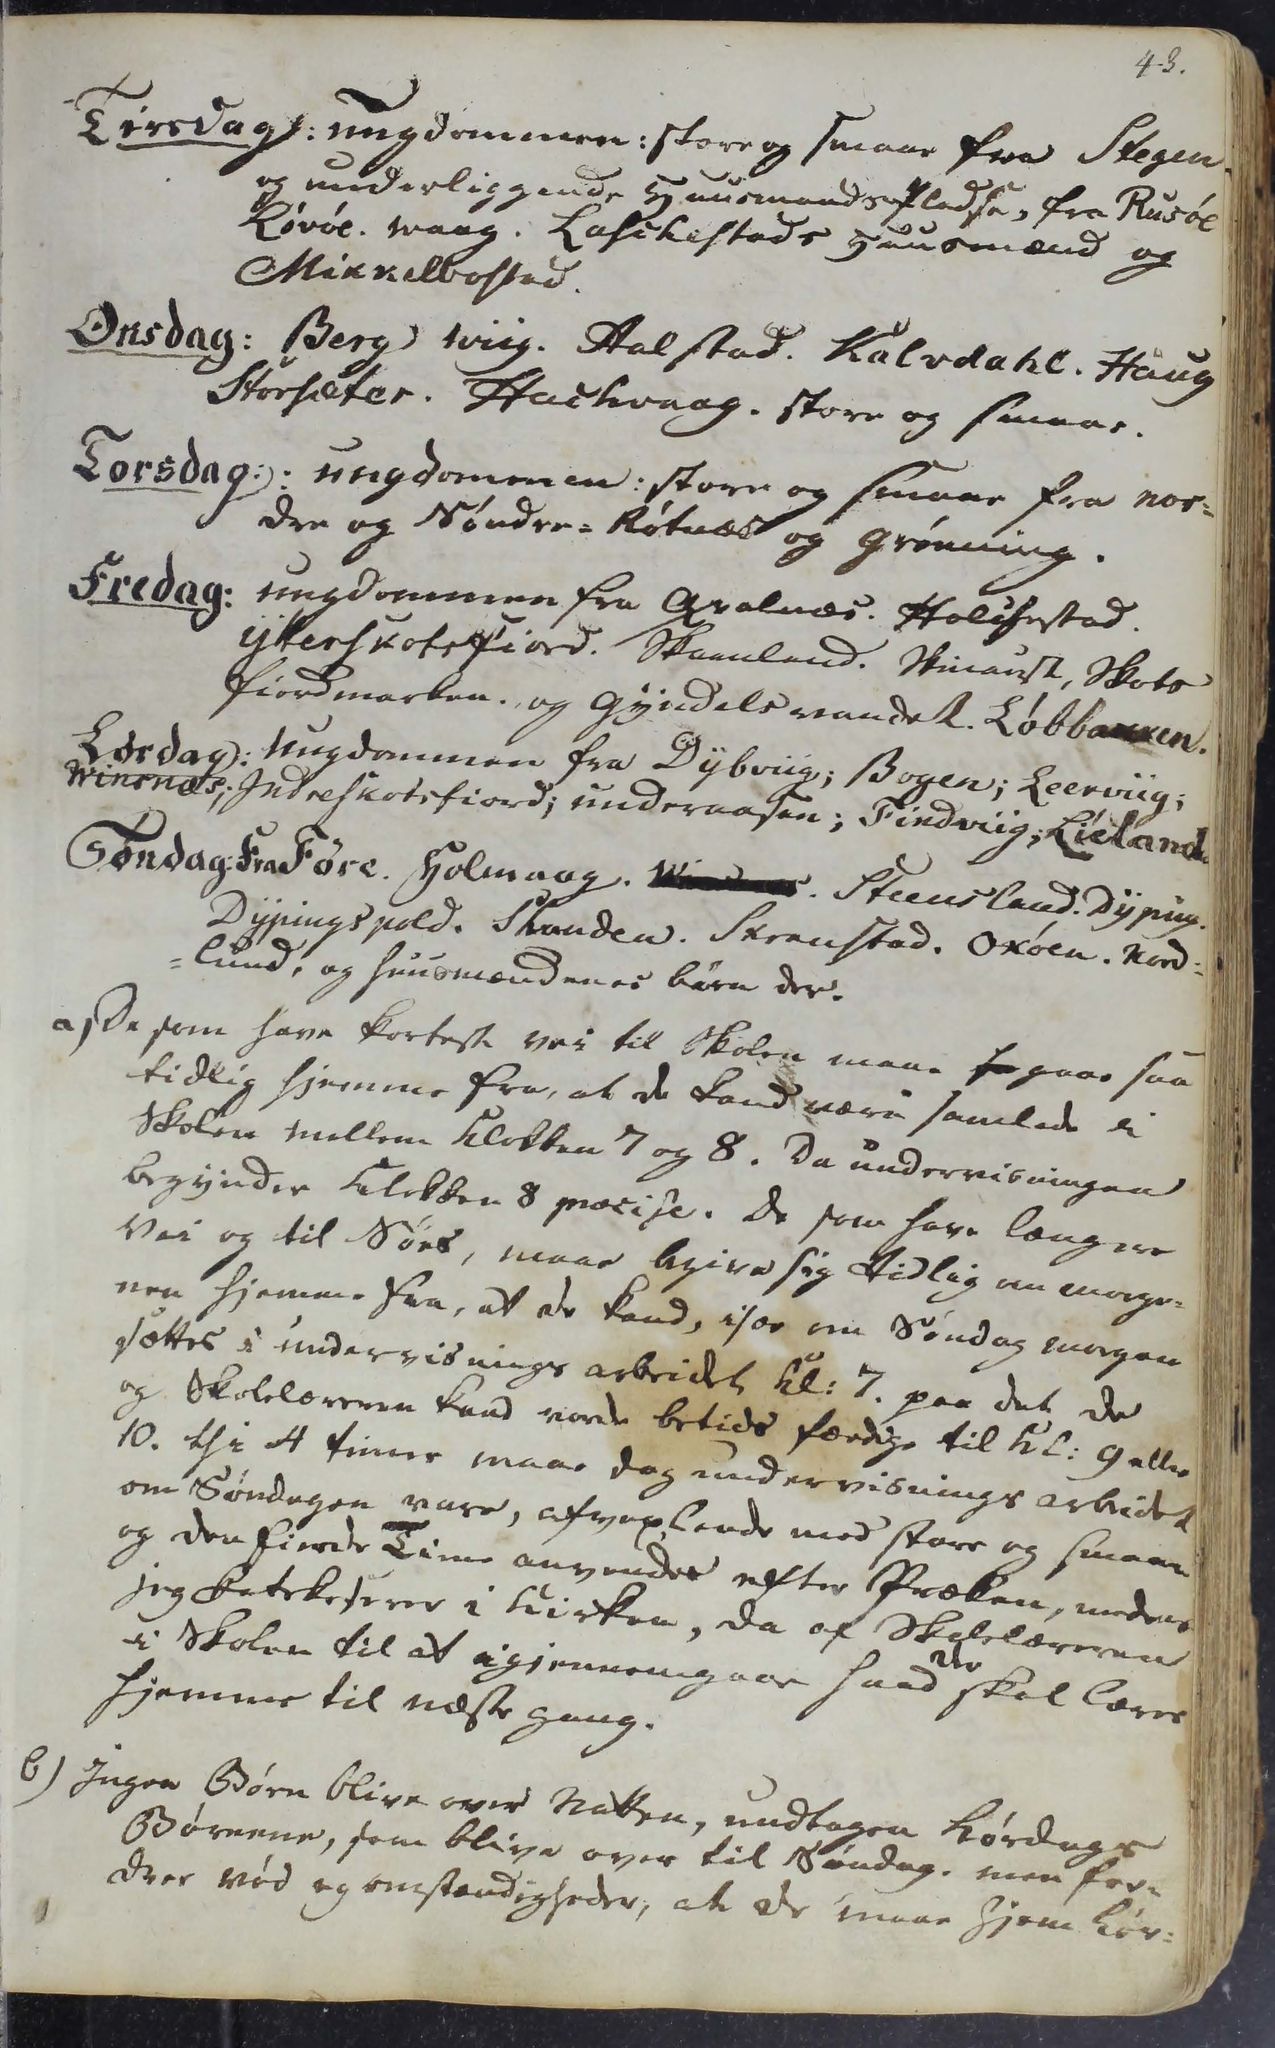 43.
Tirsdag: ungdommen: store og smaae fra Stegen
og underliggende Huusmands Pladse, fra Rusøe
Løvøe. Waag. Laschestads Huusmænd og
Mikkelbostad.
Onsdag: Berg Wiig. Aalstad. Kalvdahl. Haug
Storsæter. Hachvaag. store og smaae.
Torsdag: ungdommen: store og smaae fra nor-
dre og Søndre-Røtnæs og Grønning.
Fredag: ungdommen fra Qvalnæs. Holchestad.
Ytterskotsfiord. Skaanland. Skots
fiordmarken. og Gyndelsvandet. Løbbakken.
Lørdag: Ungdommen fra Dybviig; Bogen; Leerviig;
Winsnæs; Indreskotsfiord; underaasen; Findviig; Lieland.
Søndag: Fra Føre. Holmaag. Steensland. Dyping.
Dypingspold. Stranden. Skranstad. Oxøen. Nord-
-lund, og huusmændenes børn der.
a) De som have korteste vei til Skolen maae gaae saa
tidlig hjemme fra, at de kand være samlede i
Skolen mellem Klokken 7 og 8. Da undervisningen
begynder Klokken 8 præcise. De som have længere
Vei og til Søes, maae begive sig tidlig om morge-
nen hjemme fra, at de kand, især om Søndag morgen
sættes i undervisnings arbeidet Kl: 7. paa det de
og Skolelæreren kand vorde betids færdige til Kl: 9 eller
10. thi 4 timer maae dog undervisnings arbeidet
om Søndagen vare, afvexlende med store og smaae
og den fierde Time anvendes efter Præken, medens
jeg Catechiserer i Kirken, da af Skolelæreren
i Skolen til at igjennemgaae hvad der skal læres
hjemme til næste gang.
b) Ingen Børn blive over Natten, undtagen Lørdags
Børnene, som blive over til Søndag. men for-
drer nød og omstændigheder, at de maae hjem Lør-